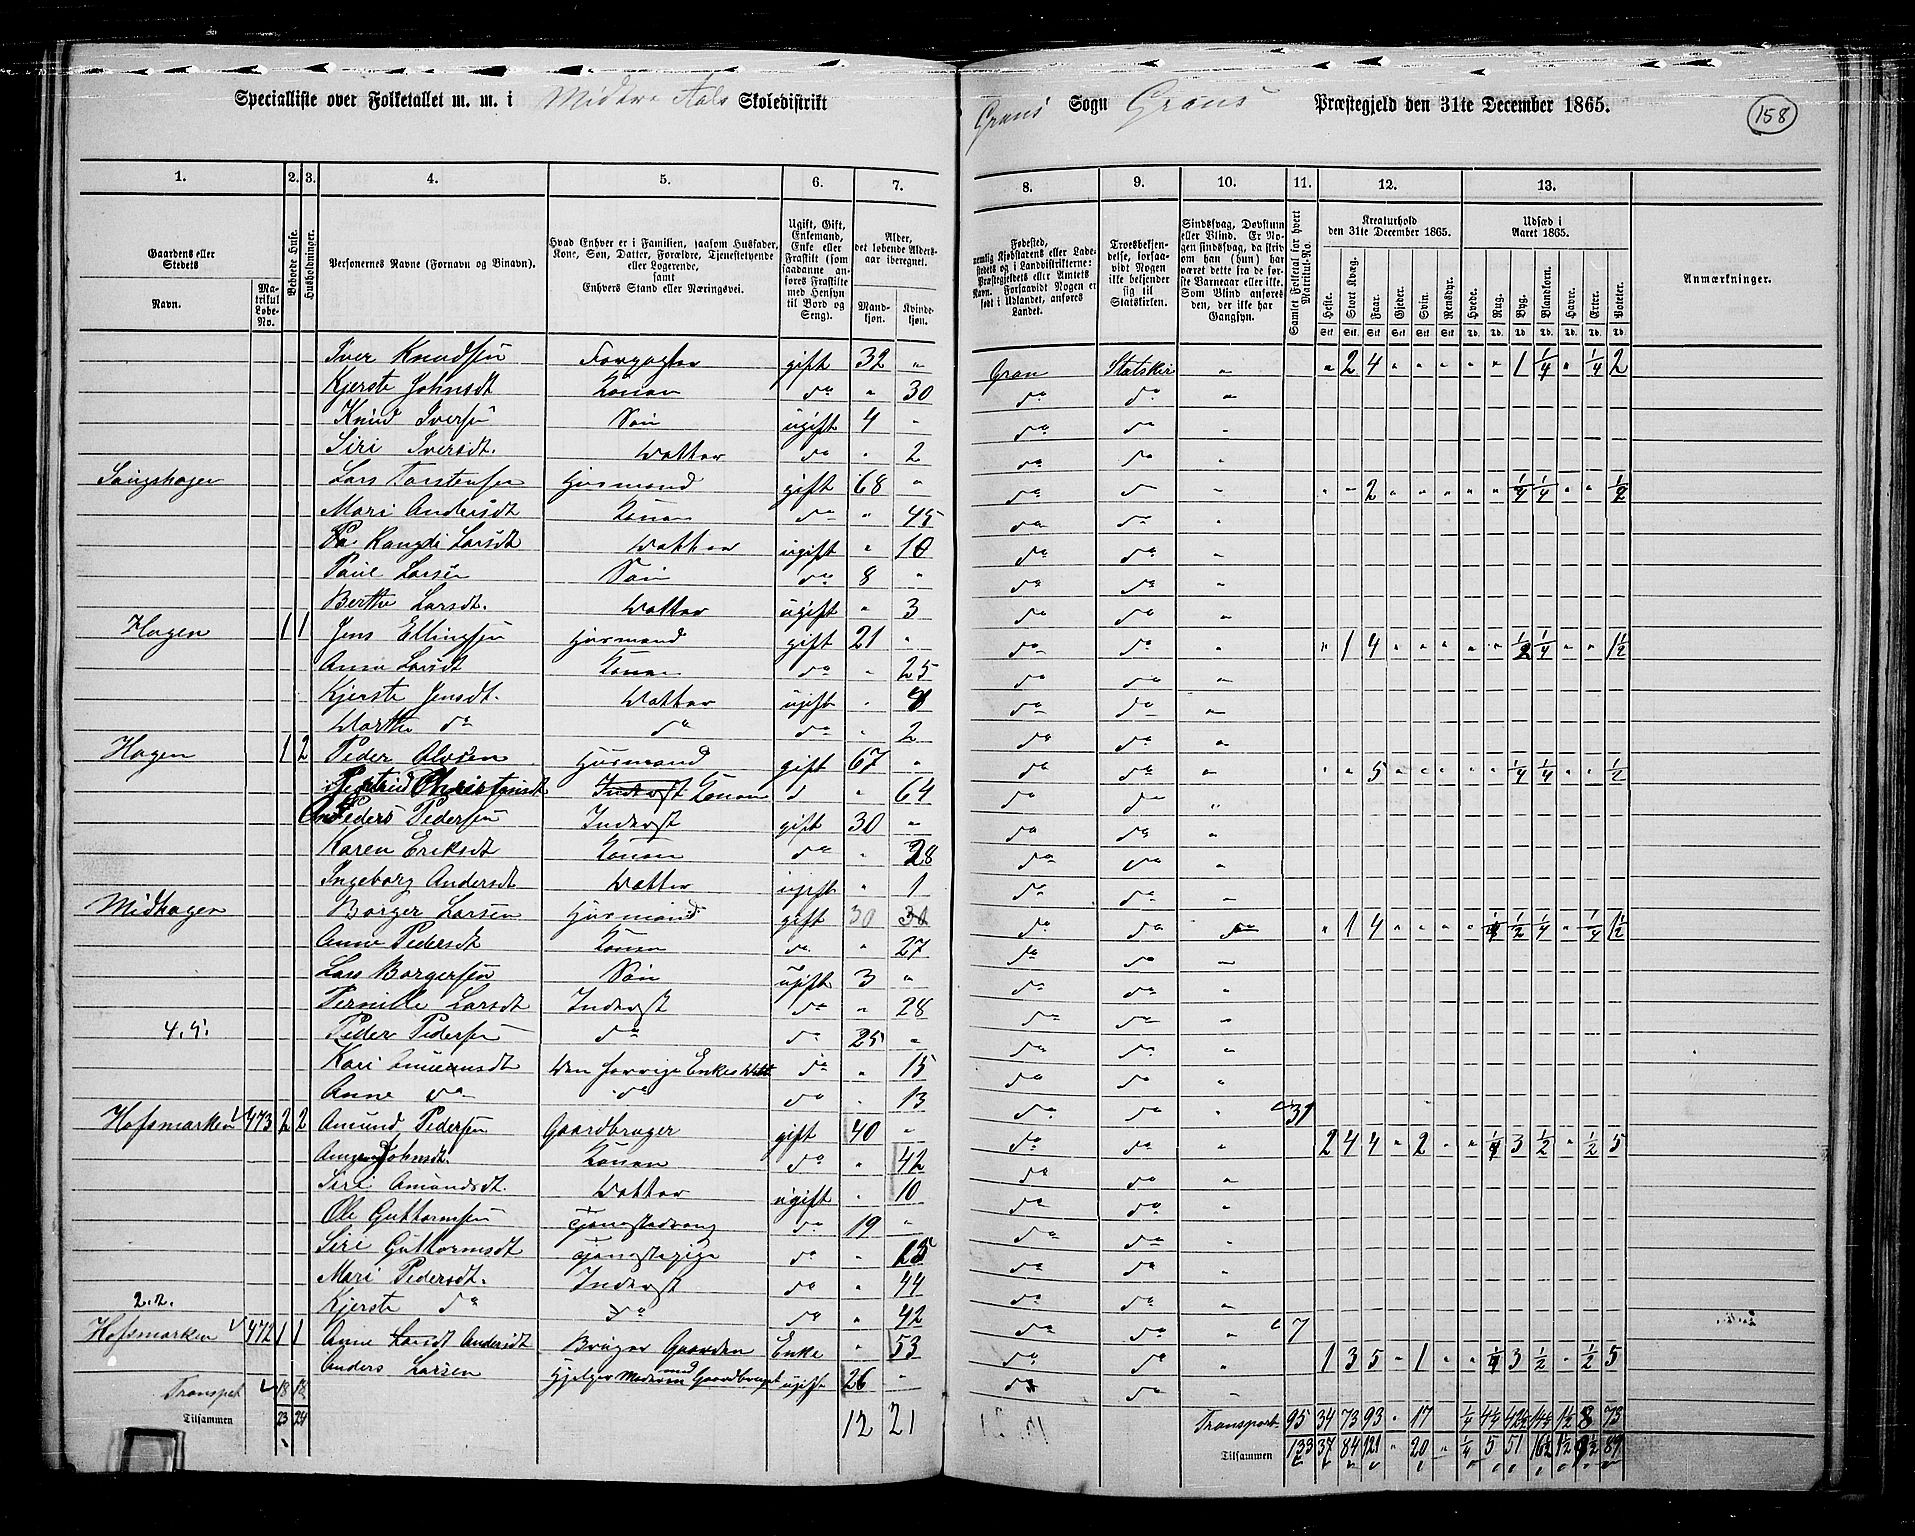 Specialliste over Folketallet m. m. i Midtre Aals Skoledistrikt Grans Sogn Grans Præstegjeld den 31te December 1865. 158
1. 2. 3. 4. 5. 6. 7. 8. 9. 10. 11. 12. 13.
Gaardens eller Stedets
Navn. Matrikul Løbe-No.
Beboede Huse.
Husholdninger.
Personernes Navne (Fornavn og Binavn).
Hvad Enhver er i Familien, saasom Husfader, Kone, Søn, Datter, Forældre, Tjenestetyende eller Logerende, samt Enhvers Stand eller Næringsvei.
Ugift, Gift, Enkemand, Enke eller Fraskilt (som saadanne anføres Fraskilte med Hensyn til Bord og Seng).
Alder, det løbende Aldersaar iberegnet.
Mandkjøn. Kvindekjøn.
Fødested, nemlig Kjøbstadens eller Ladestedets og i Landdistrikterne: Præstegjeldets eller Amtets Navn. Forsaavidt Nogen er født i Udlandet, anføres Landet.
Troesbekjendelse, forsaavidt Nogen ikke bekjender sig til Statskirken.
Sindssvag, Døvstum eller Blind. Er Nogen sindssvag, da skriv om han (hun) har været dette fra de første Barneaar eller ikke. Som Blind anføres den, der ikke har Gangsyn.
Samlet Folketal for hvert Matrikul-No.
Kreaturhold den 31te December 1865.
Heste. Stort Kvæg. Faar. Gjeder. Svin. Rensdyr.
Udsæd i Aaret 1865.
Hvede. Rug. Byg. Blandkorn. Havre. Erter. Poteter.
Anmærkninger.
Iver Knudsen Forpagter gift 32 " Gran Statskir " " 2 4 " " " " " 1 1/4 " 1/4 2
Kjerste Johnsdt Konen do " 30 do do "
Knud Iversen Søn ugift 4 " do do "
Siri Iversdt. Datter do " 2 do do "
Lars Torstensen Husmand gift 68 " do do " " " 2 " " " " " 1/4 1/4 " " 1/2
Mari Andersdt Konen do " 45 do do "
Rangdi Larsdt Datter ugift " 10 do do "
Paul Larsen Søn do 8 " do do "
Berthe Larsdt. Datter ugift " 3 do do "
Hagen 1 1 Jens Ellingsen Husmand gift 21 " do do " " 1 4 " " " " " 1/2 1/4 " " 1 1/2
Anne Larsdt Konen do " 25 do do "
Kjerste Jensdt. Datter ugift " do do "
Marthe do do do " 2 do do "
Hagen 1 2 Peder Olesen Husmand gift 67 " do do " " " 5 " " " " " 1/4 1/4 " " 1/2
Christensdt Inderst Konen d " 64 do do "
Anders Pedersen Inderst gift 30 " do do "
Karen Eriksdt Konen do " 28 do do "
Ingeborg Andersdt Datter ugift " 1 do do "
Midhagen Borger Larsen Husmand gift 30 30 do do do " 1 4 " " " " 1/4 1/2 1/4 " 1/4 1 1/2
Anne Pedersdt Konen do " 27 do do "
Lars Borgersen Søn ugift 3 " do do "
Pernille Larsdt Inderst do " 28 do do "
4. 4. Peder Pedersen do do 25 " do do "
Kari Amundsdt Den forrige Enkes Datter do " 15 do do "
Anne do do do " 13 do do " 31
Hofsmarken 473 2 2 Amund Pedersen Gaardbruger gift 40 " do do 2 4 4 " 2 " " 1/4 3 1/2 " 1/2 5
Johnsdt. Konen do " 42 do do "
Siri Amundsdt. Datter ugift " 10 do do
Ole Guttormsen Tjenestedreng do 19 " do do
Siri Guttormsdt Tjenestepige do " 25 do do
Mari Pedersdt. Inderst do " 44 do do
2. 2. Kjerste do do do " 42 do do " 7
Hofsmarken 472 1 1 Anne Larsdt Andersdt Bruger Gaarden Enke " 53 do do " 1 3 5 " 1 " " 1/4 3 1/2 " 1/2 5
Anders Larsen Hjelper Moderen med Gaardbruget ugift 26 " do do
Transpt 18 18 Transport 95 34 73 93 " 17 1/4 8 73
Tilsammen 23 24 12 21 Tilsammen 133 37 84 121 " 20 " 1/4 5 51 16 1/2 1 1/2 9 1/2 89